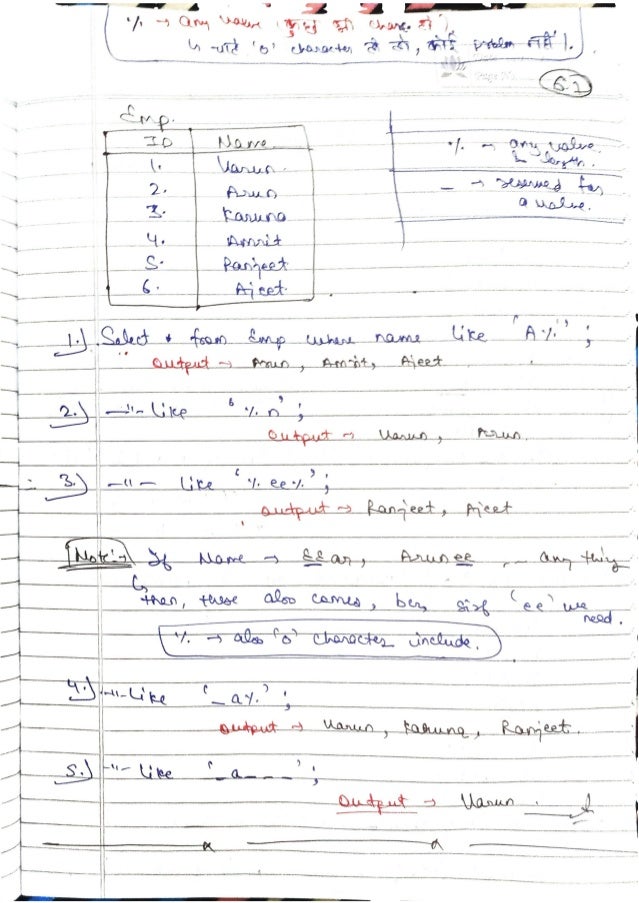 % → any value (कुछ भी charc. हो)
↳ चाहे '0' character ले लो, कोई problem नहीं।
6.2
Emp.
ID Name
1. Varun.
2. Arun
3. Karuna
4. Amrit
5. Ranjeet
6. Ajeet.
% → any value & length.
_ → reserved for a value.
1.) Select * from Emp where name like 'A%' ;
Output → Arun, Amrit, Ajeet
2.) —"– like '%n' ;
Output → Varun, Arun.
3.) —"– like '%ee%' ;
Output → Ranjeet, Ajeet
Note:→ If Name → EEar, Arunee, -- any thing
↳ then, these also comes, bcz sirf 'ee' we need.
% → also '0' character include.
4.) –"– Like '_a%' ;
Output → Varun, Karuna, Ranjeet.
5.) –"– like '_a___' ;
Output → Varun.